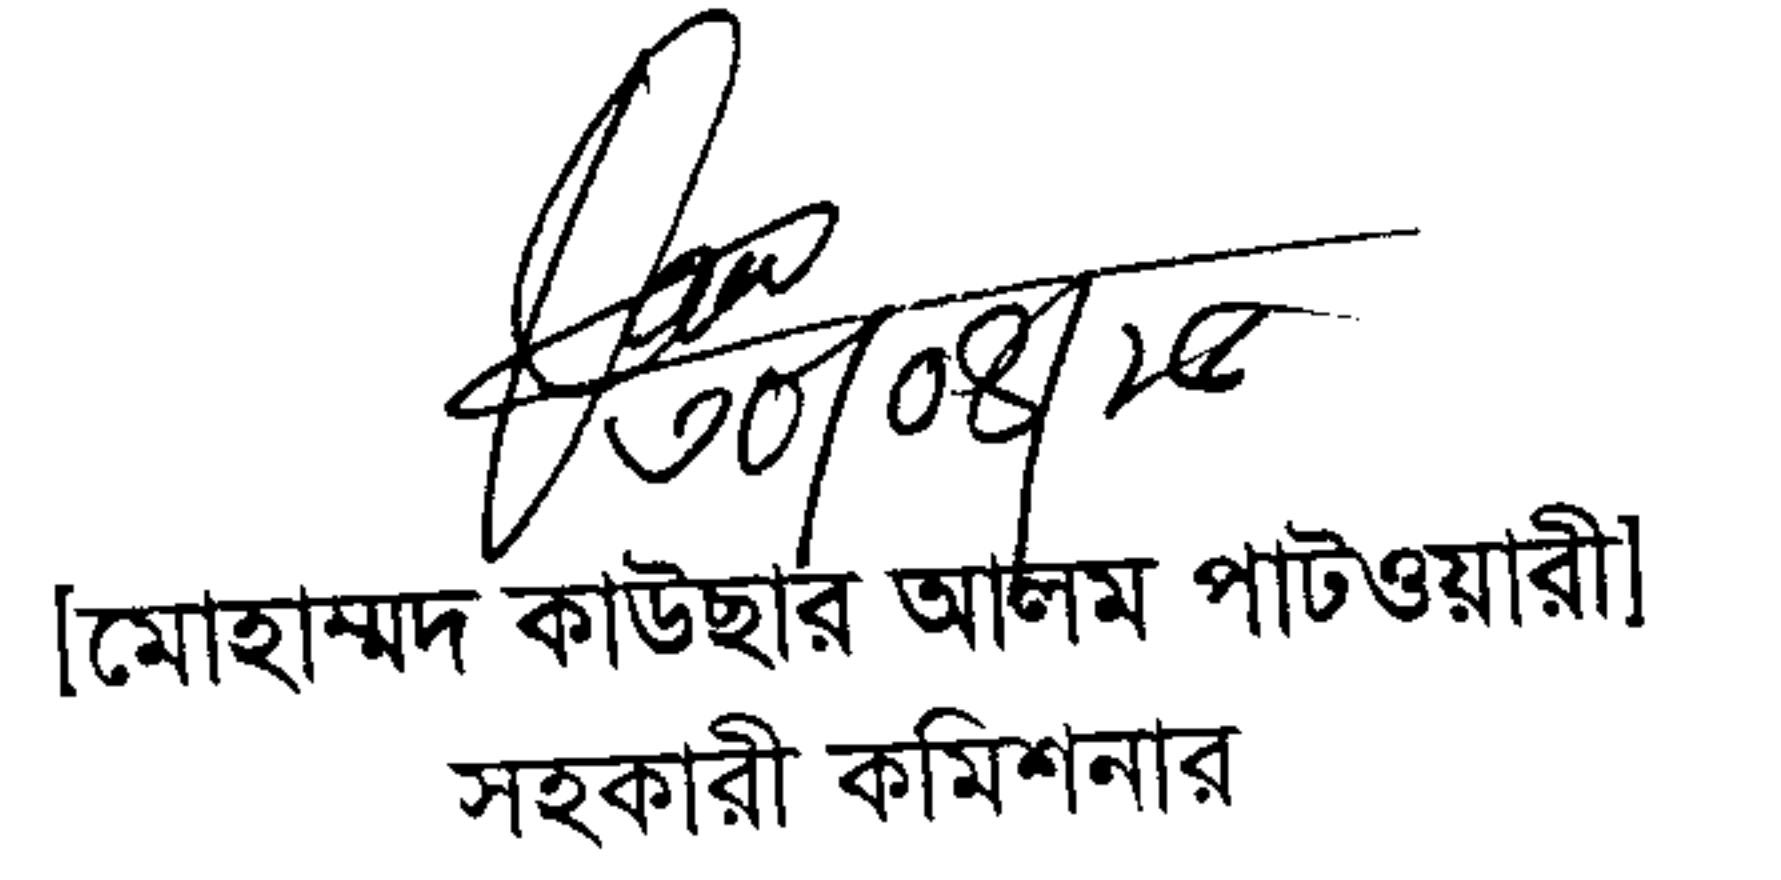 ৩০/০৪/২৫
[মোহাম্মদ কাউছার আলম পাটওয়ারী]
সহকারী কমিশনার